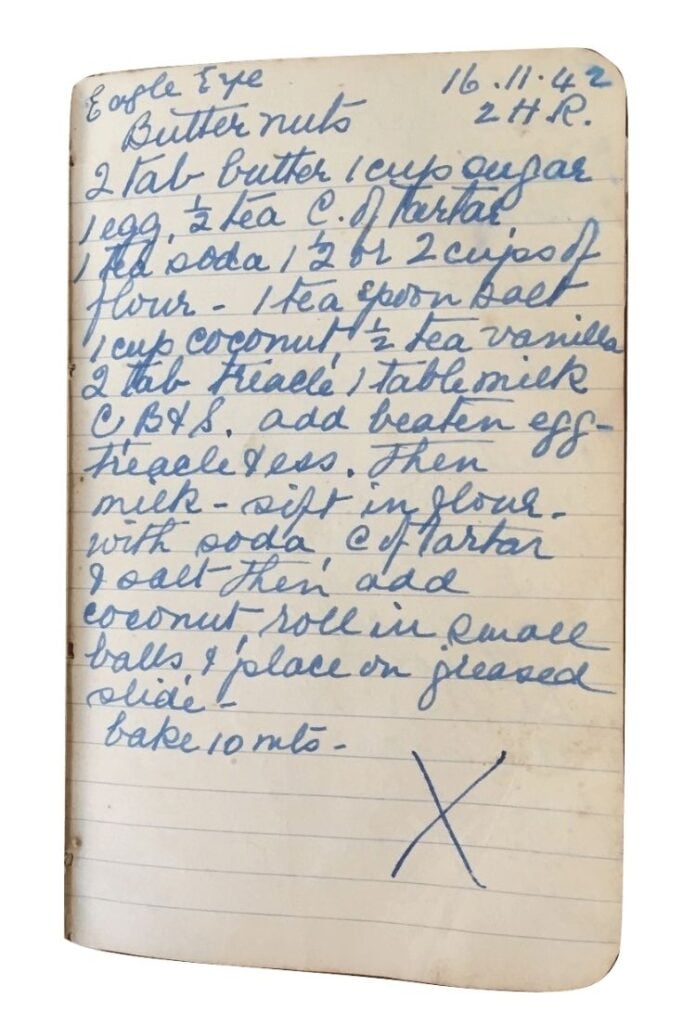 Eagle Eye 16.11.42
Butter nuts 2 H R.
2 tab butter 1 cup sugar
1 egg, ½ tea C. of tartar
1 tea soda 1½ or 2 cups of
flour - 1 tea spoon salt
1 cup coconut, ½ tea vanilla
2 tab treacle, 1 table milk
C, B & S. add beaten egg -
treacle & ess. Then
milk - sift in flour -
with soda, C of tartar
& salt Then add
coconut, roll in small
balls & place on greased
slide -
bake 10 mts -
X